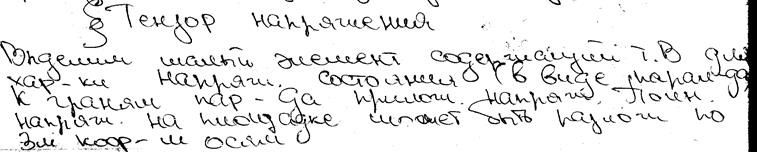 § Тензор напряжения
Выделим малый элемент содержащий т. В для
хар-ки напряж. состояния (в виде парал-да)
К граням пар-да прилож. напряж. Полн.
напряж. на площадке может быть разлож по
3м коор-м осям